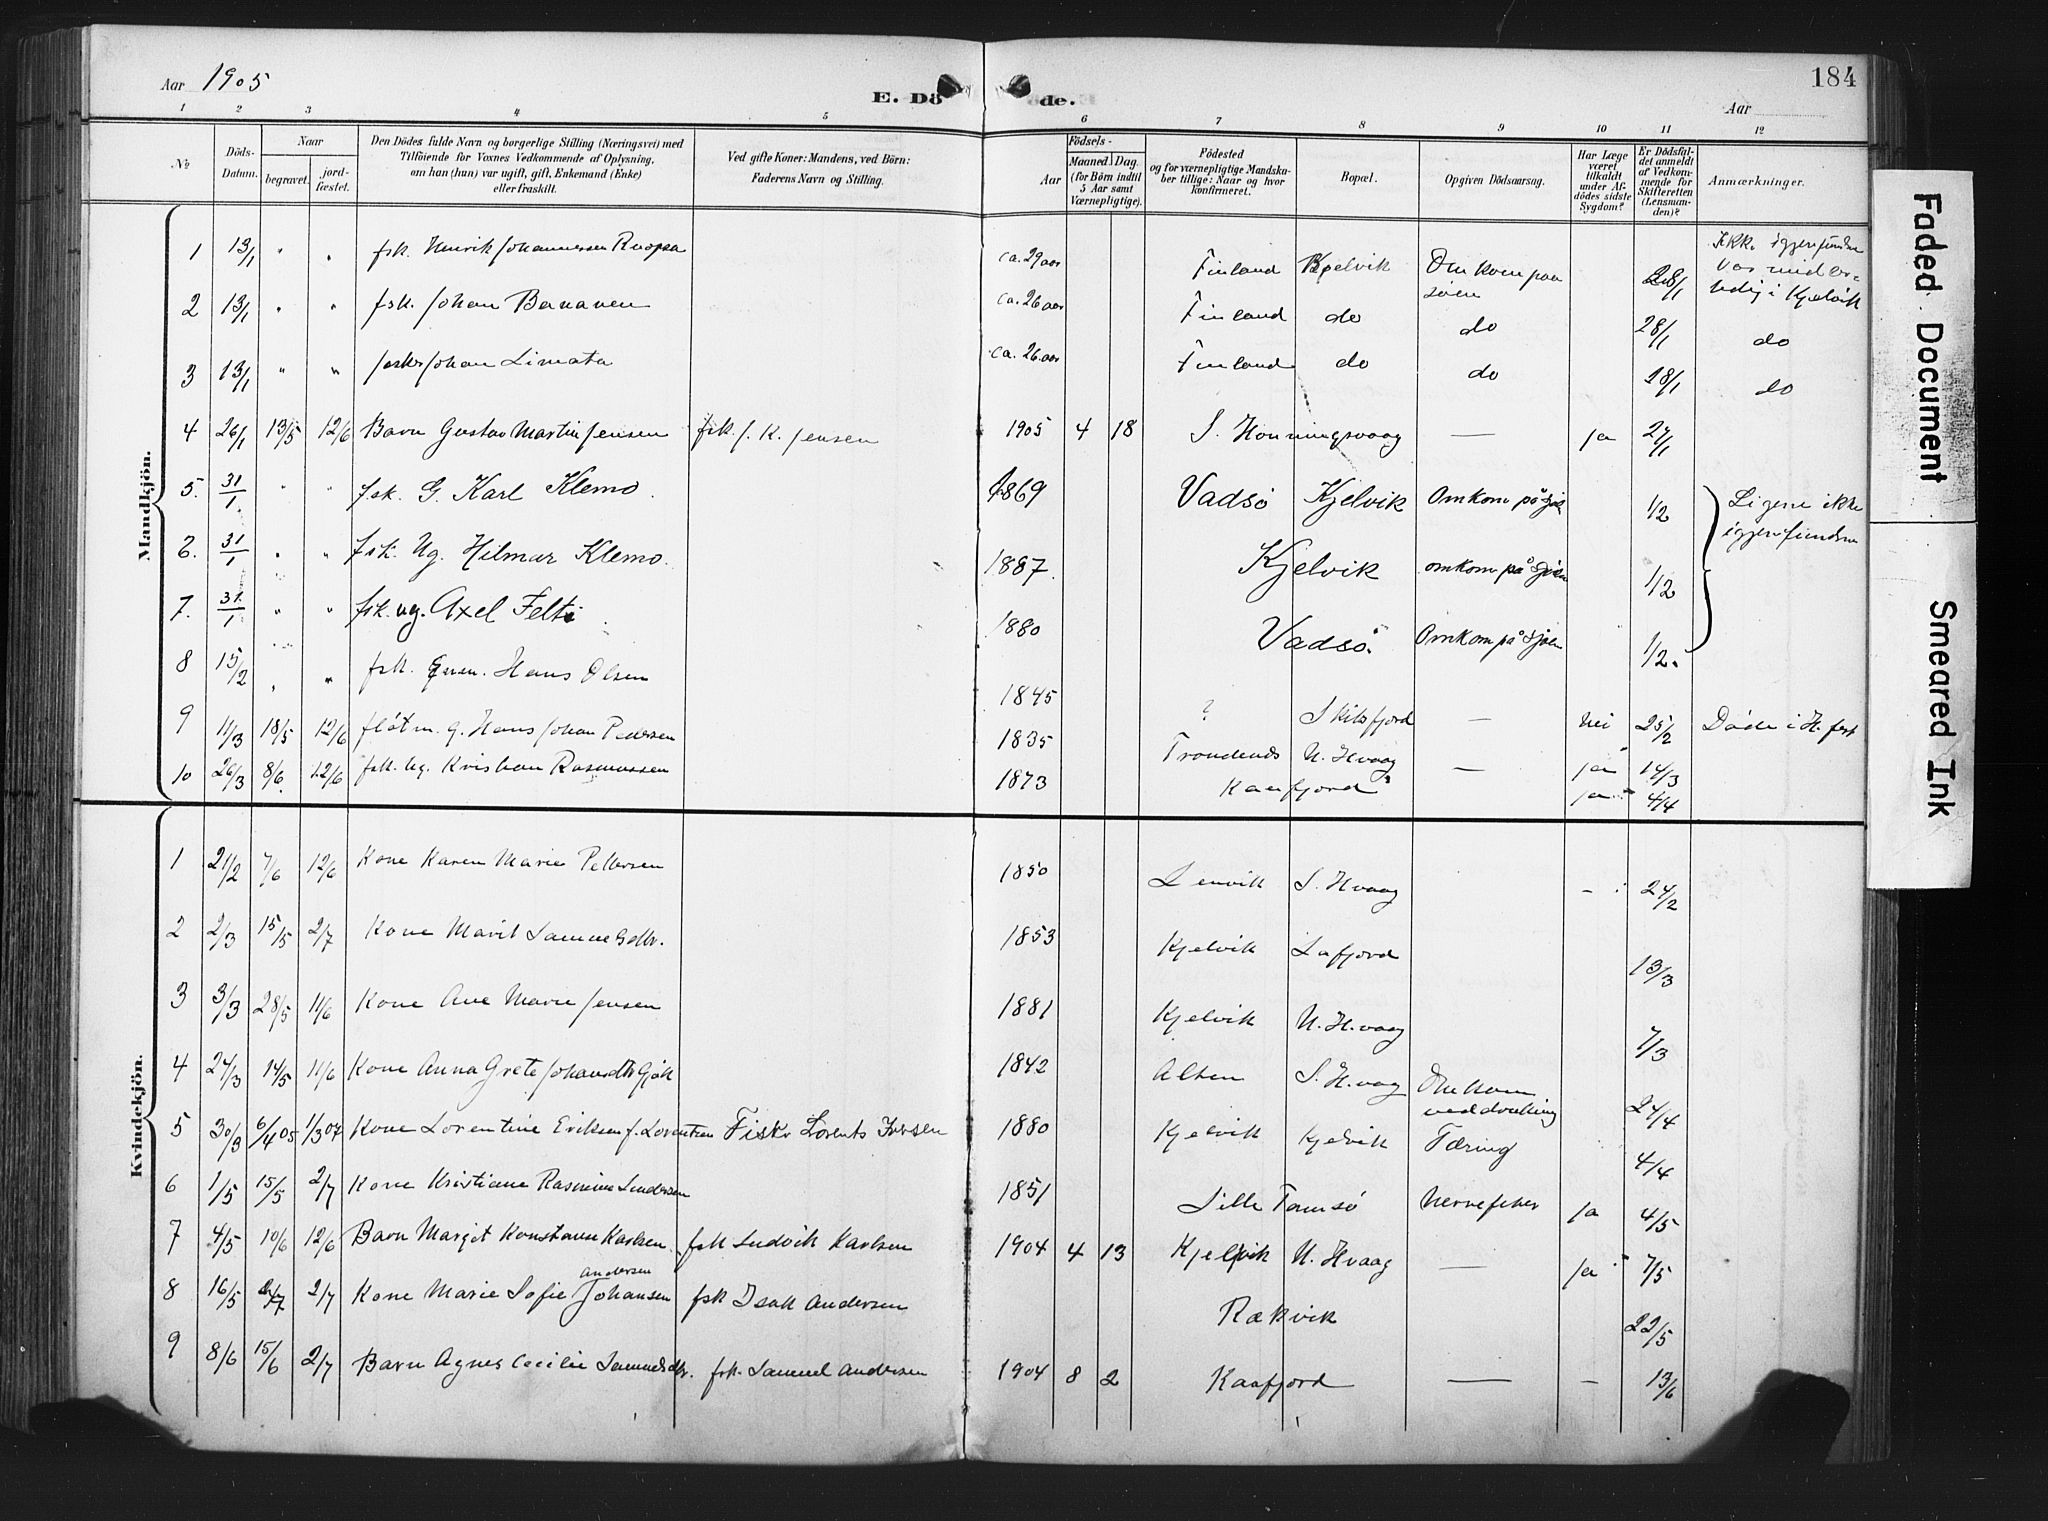 Aar 1905
E. Dö de.
184
Aar
1 2 3 4 5 6 7 8 9 10 11 12
No
Döds-Datum.
Naar
begravet. jord-fæstet.
Den Dödes fulde Navn og borgerlige Stilling (Næringsvei) med
Tilföiende for Voxnes Vedkommende af Oplysning,
om han (hun) var ugift, gift, Enkemand (Enke)
eller fraskilt.
Ved gifte Koner: Mandens, ved Börn:
Faderens Navn og Stilling.
Födsels-
Aar
Maaned. Dag.
(for Börn indtil
5 Aar samt
Værnepligtige).
Födested
og for værnepligtige Mandska-
ber tillige: Naar og hvor
konfirmeret.
Bopæl.
Opgiven Dödsaarsag.
Har Læge
været
tilkaldt
under Af-
dödes sidste
Sygdom?
Er Dödsfal-
det anmeldt
af Vedkom-
mende for
Skifteretten
(Lensman-
den)?
Anmærkninger.
Mandkjön.
1 13/1 " " fsk. Henrik Johannessen Ruopsa ca. 29 aar Finland Kjelvik Omkom paa söen 28/1 Ikke igjenfunden Var midler-tidig i Kjelvik
2 13/1 " " fsk. Johan Banaven ca. 26 aar Finland do do 28/1 do
3 13/1 " " fsker Johan Limata ca. 26 aar Finland do do 28/1 do
4 26/1 13/5 12/6 Barn Gustav Martin Jensen fsk. J. K. Jensen 1905 4 18 S. Honningsvaag — ja 27/1
5. 31/1 " " fsk. G. Karl Klemo. 1869 Vadsö Kjelvik Omkom på sjöen 1/2 Ligene ikke igjenfundne
6. 31/1 " " fsk. Ug. Hilmar Klemo. 1887. Kjelvik omkom på sjöen 1/2
7. 31/1 " " fsk. ug. Axel Felti. 1880 Vadsö. Omkom på sjöen 1/2.
8 15/2 " " fsk. Hans Olsen 1845 ? Skitsfjord — nei 25/2 Döde i H.fest
9 11/3 18/5 12/6 flötm. g. Hans Johan Pedersen 1835 Trondenes N. Hvaag — ja 14/3
10 26/3 8/6. 12/6 fsk. ug. Kristian Rasmussen 1873 Kaafjord ja 4/4
Kvindekjön.
1 21/2 7/6 12/6 Kone Karen Marie Pettersen 1850 Lenvik S. Hvaag - 24/2
2 2/3 15/5 2/7 Kone Marit Samuelsdtr. 1853 Kjelvik Lafjord 13/3
3 3/3 28/5 11/6 Kone Ane Marie Jensen 1881 Kjelvik N. H.vaag 7/3
4 24/3 14/5 11/6 Kone Anna Grete Johansdtr Gjök 1842 Alten S. H.vaag Omkom ved drukning 24/4
5 30/3 6/4 05 1/3 07 Kone Lorentine Eriksen f. Lorentzen Fisker Lorents Iversen 1880 Kjelvik Kjelvik Tæring 4/4
6 1/5 15/5 2/7 Kone Kristiane Rasmine 1851 Lille Tamsö Nervefeber ja 4/5
7 4/5 10/6 12/6 Barn Margit Konstanse Karlsen. fsk Ludvik Karlsen 1904 4 13 Kjelvik N. Hvaag — ja 7/5
8 16/5 2/7 2/7 Kone Marie Sofie Andersen Johansen fsk Isak Andersen Rækvik 22/5
9 8/6 15/6 2/7 Barn Agnes Cecilie Samuelsdtr. fsk. Samuel Andersen 1904 8 2 Kaafjord — - 13/6
Faded Document
Smeared Ink